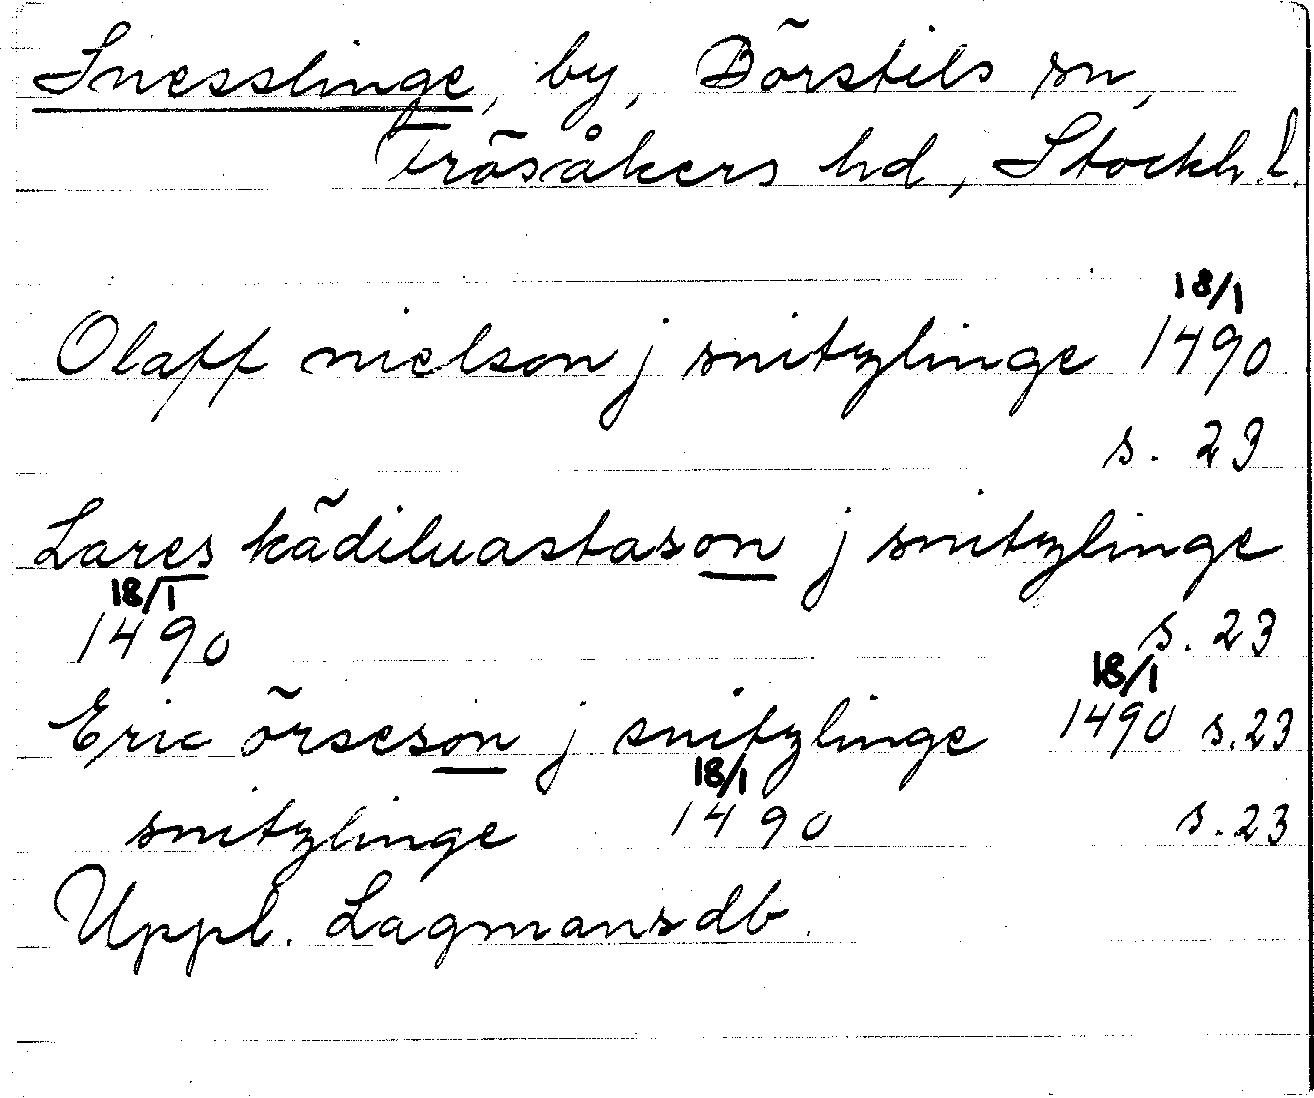 Snesslinge, by, Börstils sn,
Frösåkers hd, Stockh. l.
18/1
Olaff nielson j snitzlinge 1490
s. 23
Lares kädiluastason j snitzlinge
18/1
1490 s. 23
18/1
Eric örseson j snitzlinge 1490 s. 23
18/1
snitzlinge 1490 s. 23
Uppl. Lagmansdb.